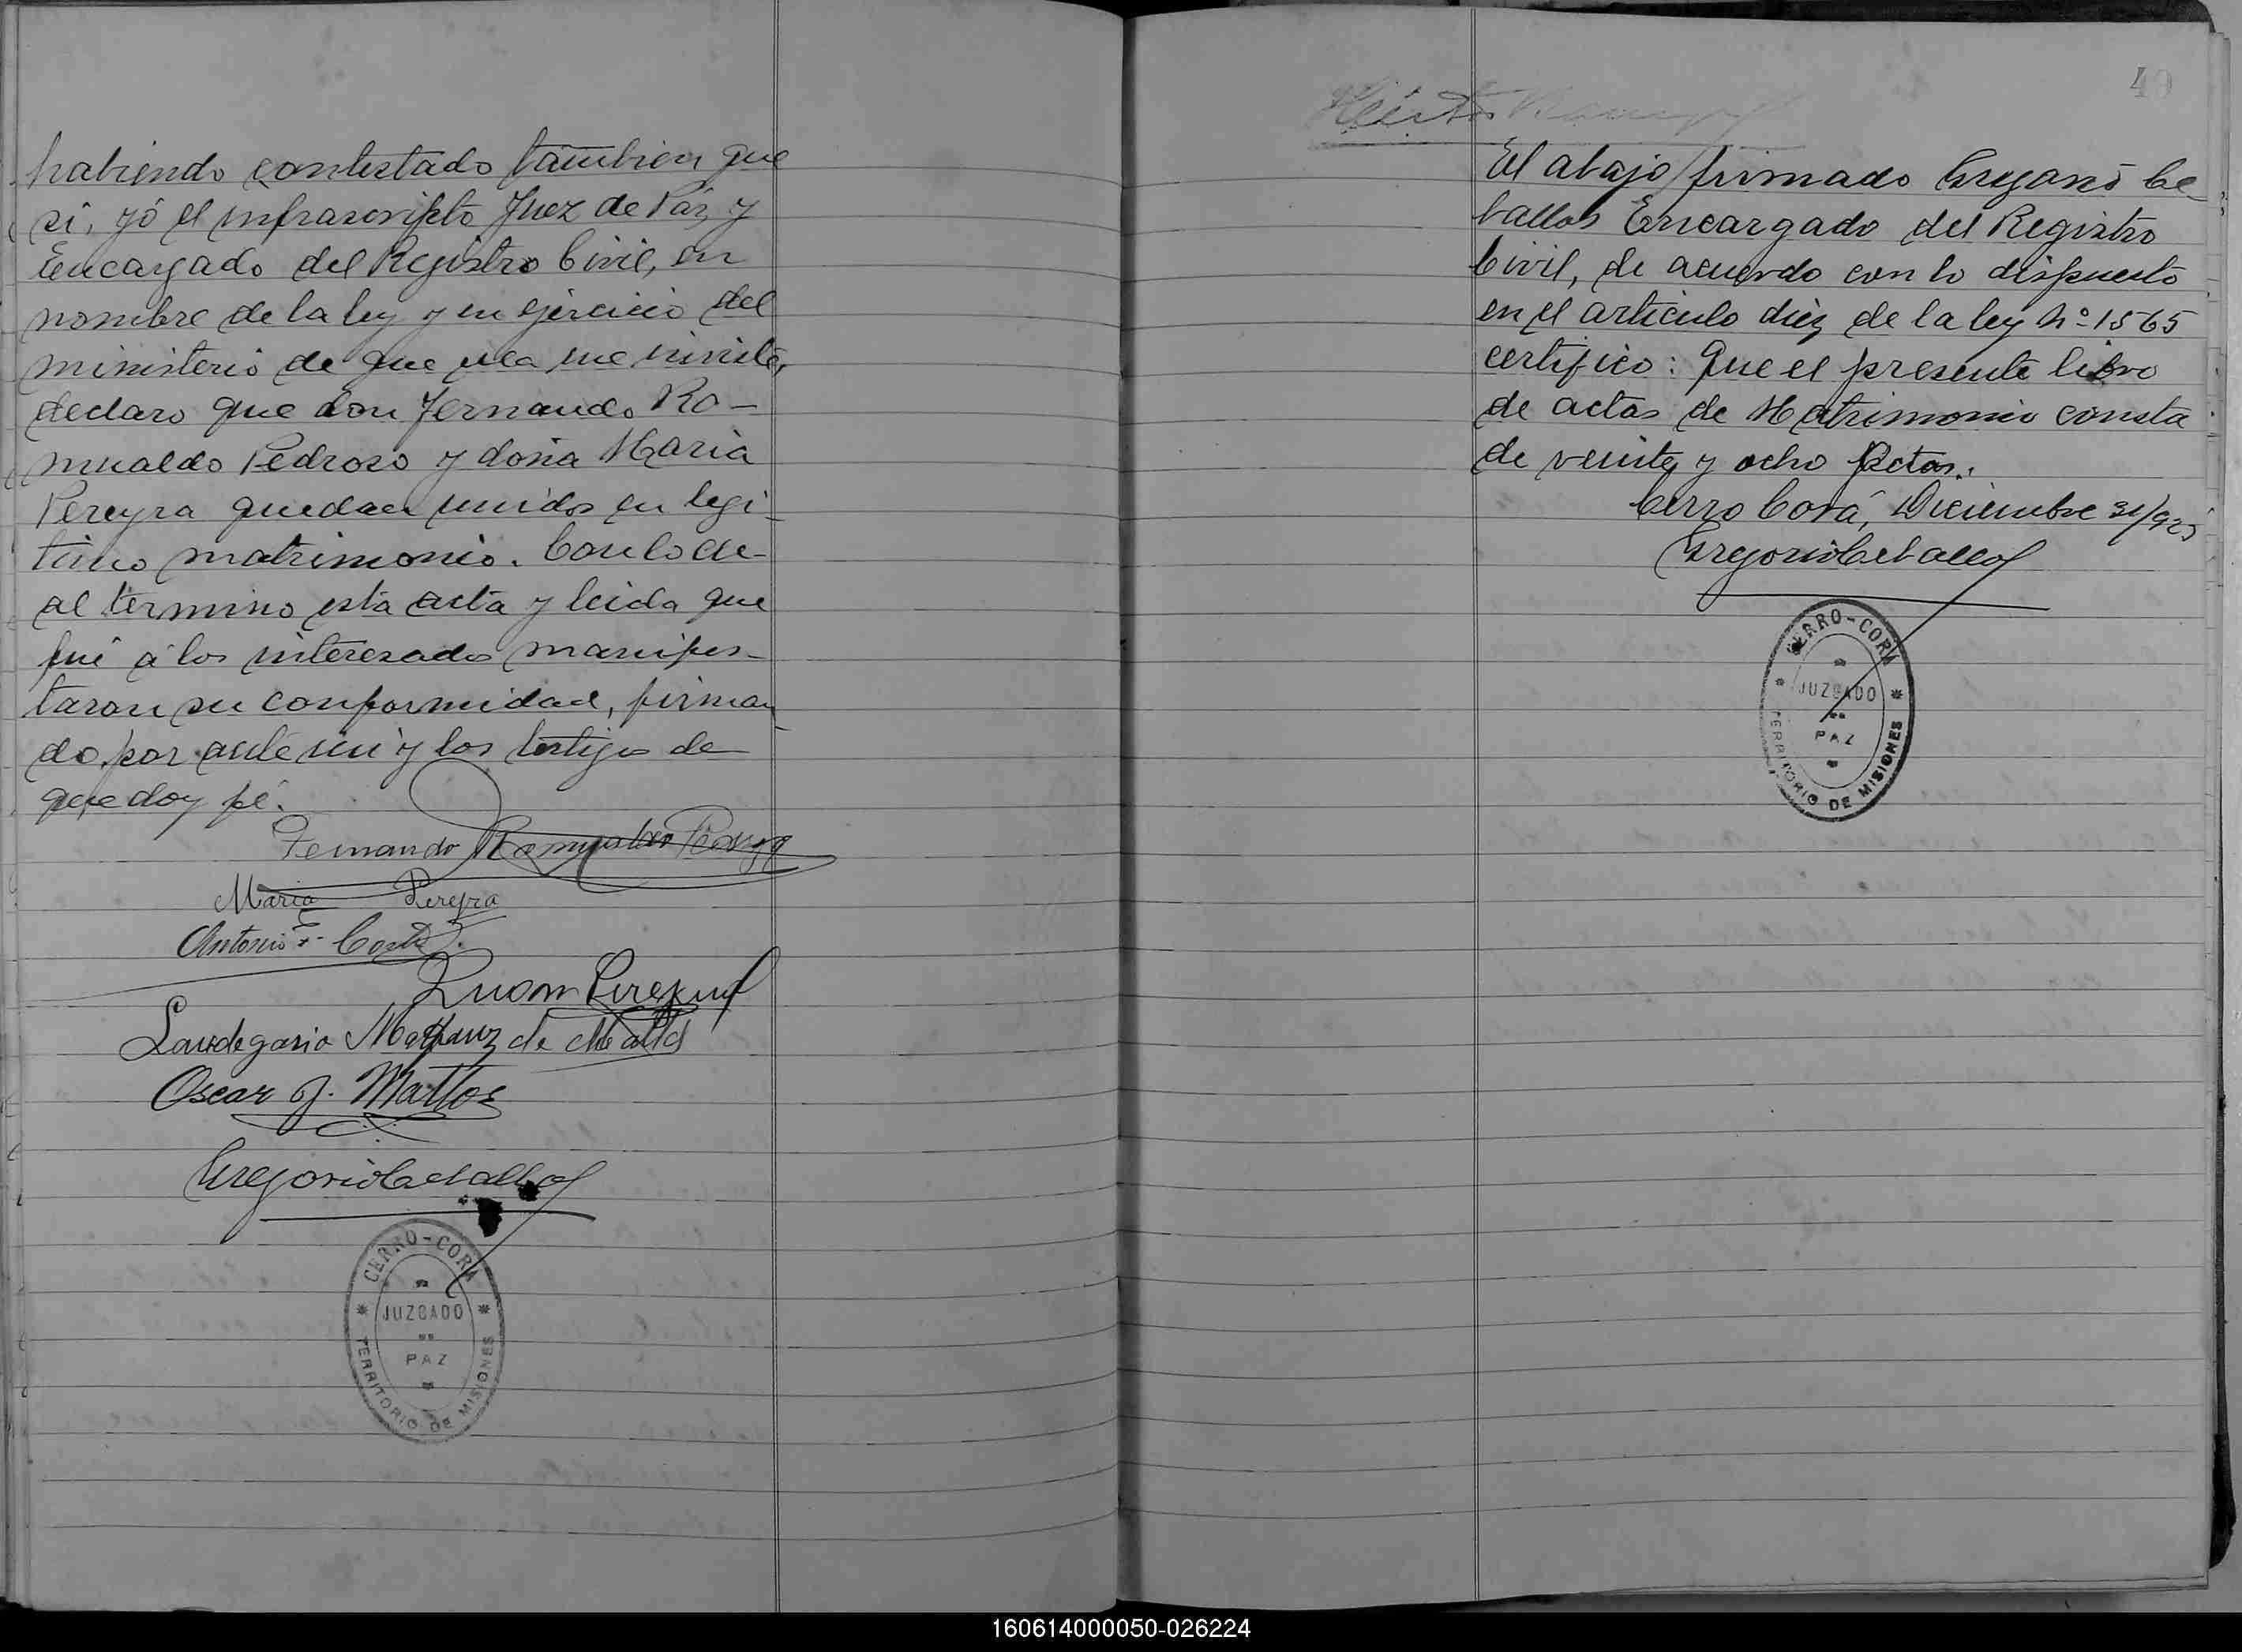 habiendo contestado tambien que
si, yó el infrascripto Juez de Páz y
Encargado del Registro Civil, en
nombre de la ley y en ejercicio del
ministerio de que ella me inviste,
declaro que don Fernando Ro-
mualdo Pedrozo y doña Maria
Pereyra quedan unidos en legi-
timo matrimonio. Conlode
al termino esta acta y leida que
fué á los interesados manifes-
taron su conformidad, firman
do por ante mi y los testigos de
que doy fé.
Fernando Romualdo
Maria Pereyra
Antonio
Juan
de Mattos
Oscar J. Mattos
Gregorio Ceballos
CERRO-CORÁ
JUZGADO
DE
PAZ
TERRITORIO DE MISIONES
49
El abajo firmado Gregorio Ce-
ballos Encargado del Registro
Civil, de acuerdo con lo dispuesto
en el articulo diez de la ley Nº 1565
certifico: Que el presente libro
de actas de Matrimonio consta
de veinte y ocho Actas.
Cerro Corá, Diciembre 31/925
Gregorio Ceballos
CERRO-CORÁ
JUZGADO
DE
PAZ
TERRITORIO DE MISIONES
160614000050-026224